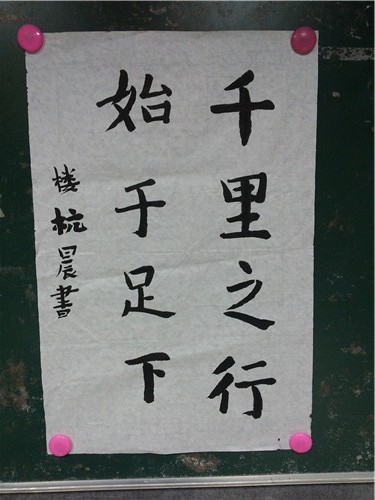 千里之行
始于足下
楼杭晨書